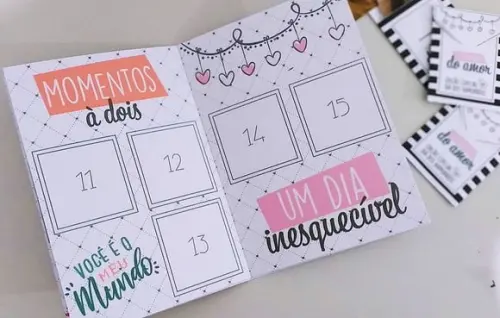 MOMENTOS
à dois
11
12
13
VOCÊ É O
MEU
Mundo
14
15
UM DIA
inesquecível
do amor
do amor